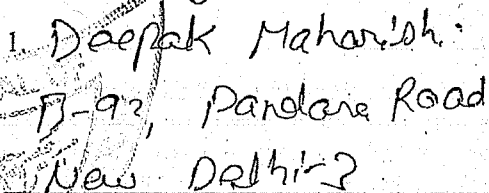 1. Deepak Maharish.
B-92, Pandara Road
New Delhi-3